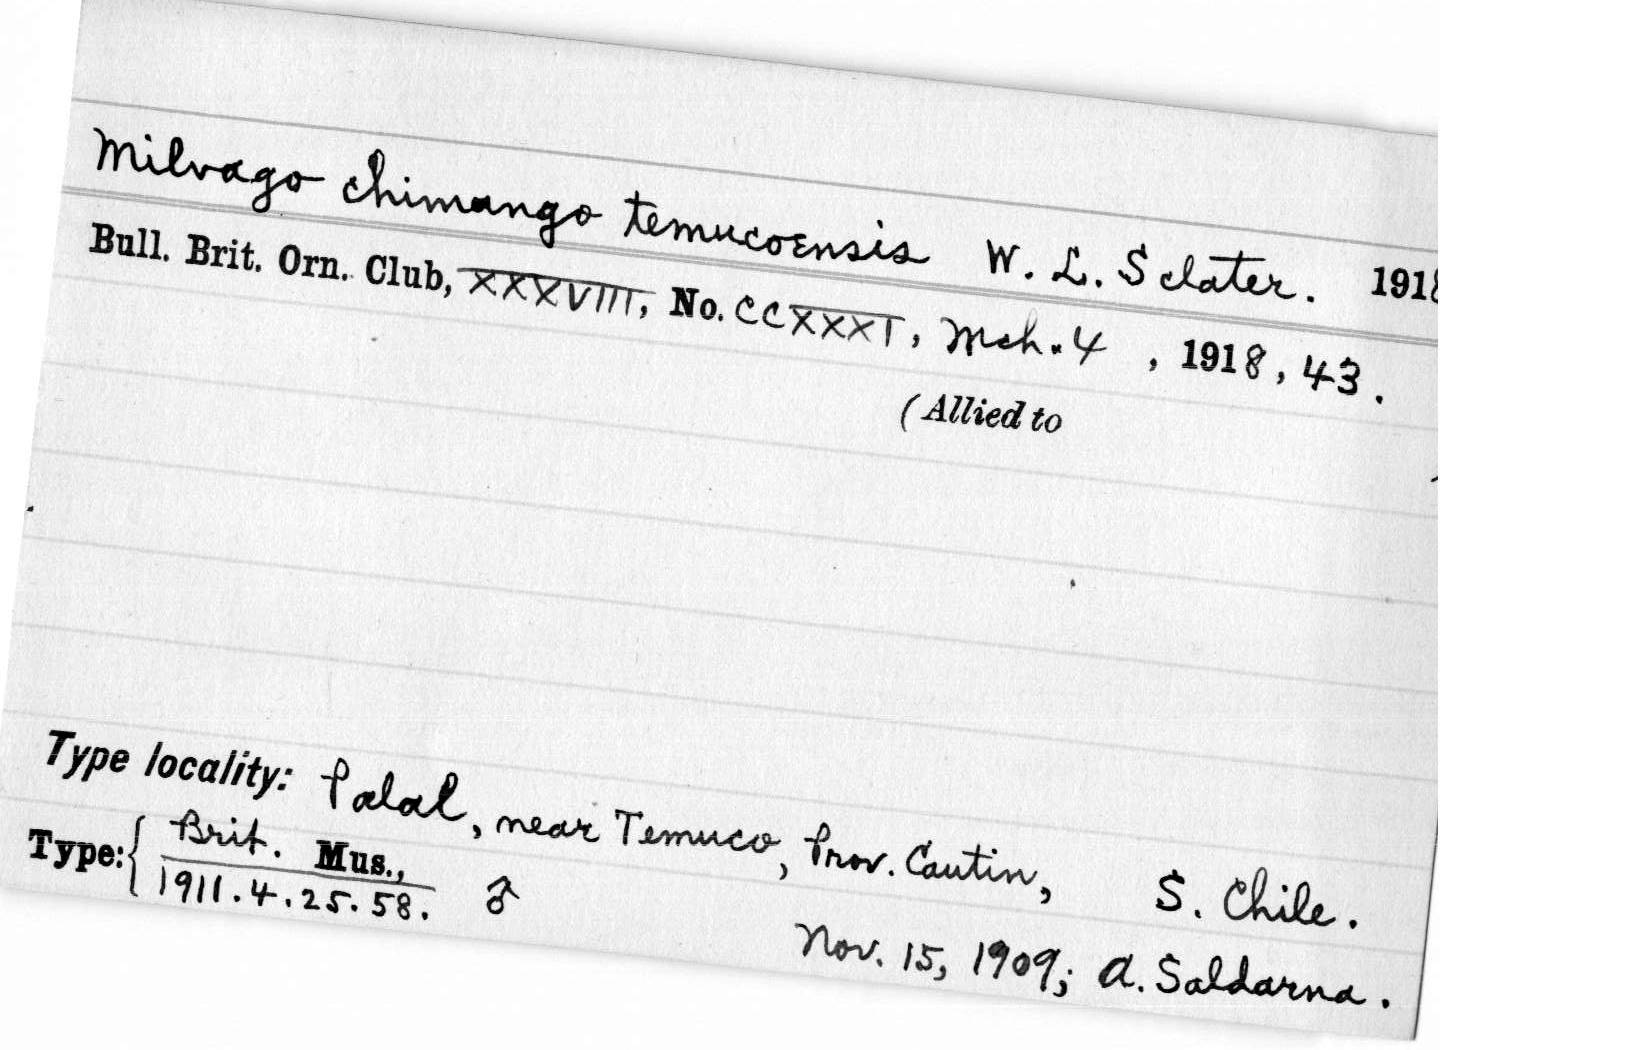 Milvago chimango temucoensis W. L. Sclater. 1918
Bull. Brit. Orn. Club, XXXVIII, No. CCXXXI, Mch. 4, 1918, 43.
(Allied to
Type locality: Palal, near Temuco, Prov. Cautin, S. Chile.
Type: { Brit. Mus.,
1911.4.25.58. ♂
Nov. 15, 1909; A. Saldarna.